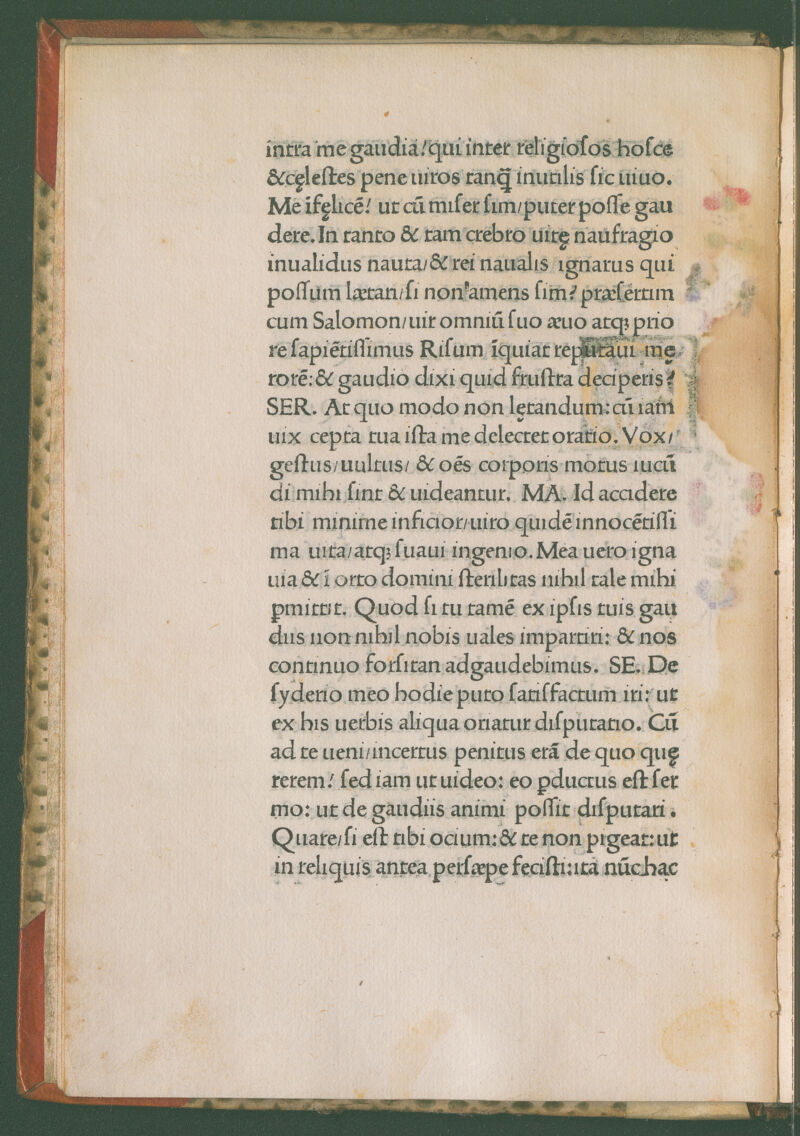 intra me gaudia!qui inter religiosos hosce
&cęlestes pene uiros tanq̃ inutilis sic uiuo.
Me īfęlicē! ut cū miser sim/puter posse gau
dere.In tanto & tam crebro uitę naufragio
inualidus nauta/& rei naualis ignarus qui
possum lætari/si non amens sim? præsertim
cum Salomon/uir omniū suo æuo atq; prio
re sapiētissimus Risum īquiat reputaui me
rorē:& gaudio dixi quid frustra deciperis?
SER. At quo modo non lętandum:cū iam
uix cepta tua ista me delectet oratio. Vox/
gestus/uultus/ & oēs corporis motus iucū
di mihi sint & uideantur. MA. Id accidere
tibi minime inficior/uiro quidē innocētissi
ma uita/atq; suaui ingenio.Mea uero igna
uia & ī orto domini sterilitas nihil tale mihi
pmittit. Quod si tu tamē ex ipsis tuis gau
diis non nihil nobis uales impartiri: & nos
continuo forsitan adgaudebimus. SE. De
syderio meo hodie puto satisfactum iri: ut
ex his uerbis aliqua oriatur disputatio. Cū
ad te ueni/incertus penitus erā de quo quę
rerem! sed iam ut uideo: eo pductus est ser
mo: ut de gaudiis animi possit disputari.
Quare/si est tibi ocium:& te non pigeat:ut
in reliquis antea persæpe fecisti:ita nūc hac